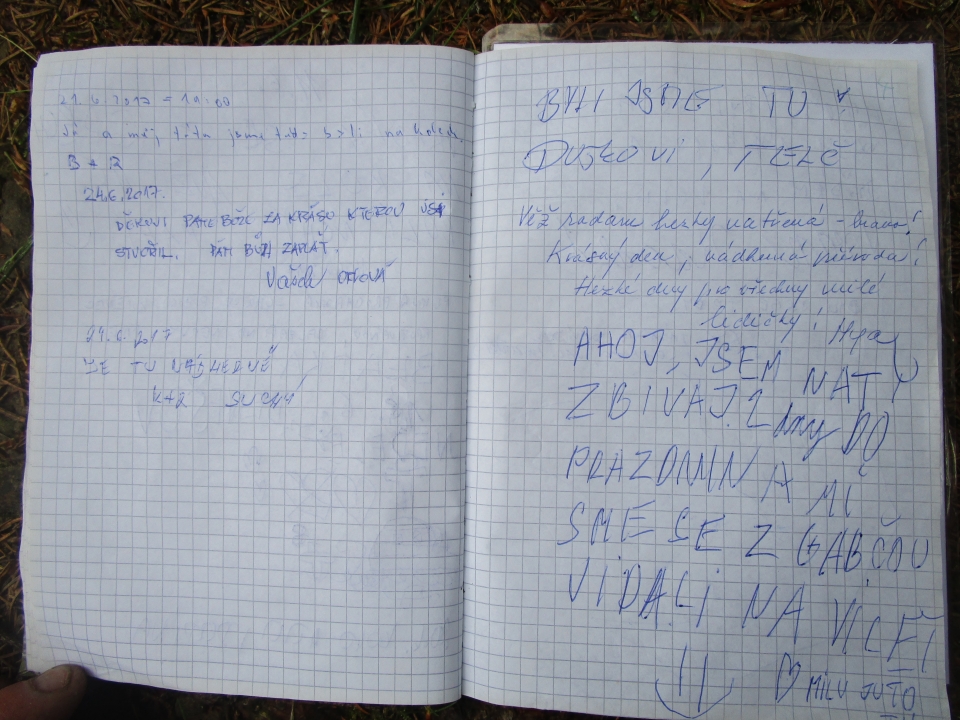 21.6.2017 = 19:00
Já a můj táta jsme tu byli na kole
B + R
24.6.2017.
DĚKUJI PANE BOŽE ZA KRÁSU KTEROU JSI
STVOŘIL. PÁN BŮH ZAPLAŤ.
29.6.2017
JE TU NÁDHERNĚ
K+R SUCHÝ
BYLI JSME TU!
DUŠKOVI, TELČ
Věž padaru hezky natřená - Bravo!
Krásný den, nádherná příroda!
Hezké dny pro všechny milé
lidičky!
AHOJ, JSEM NATY
ZBIVAJ. 2 dny DO
PRAZDNIN A MI
SME SE Z GABČOU
VIDALI NA VILET
MILUJU TO